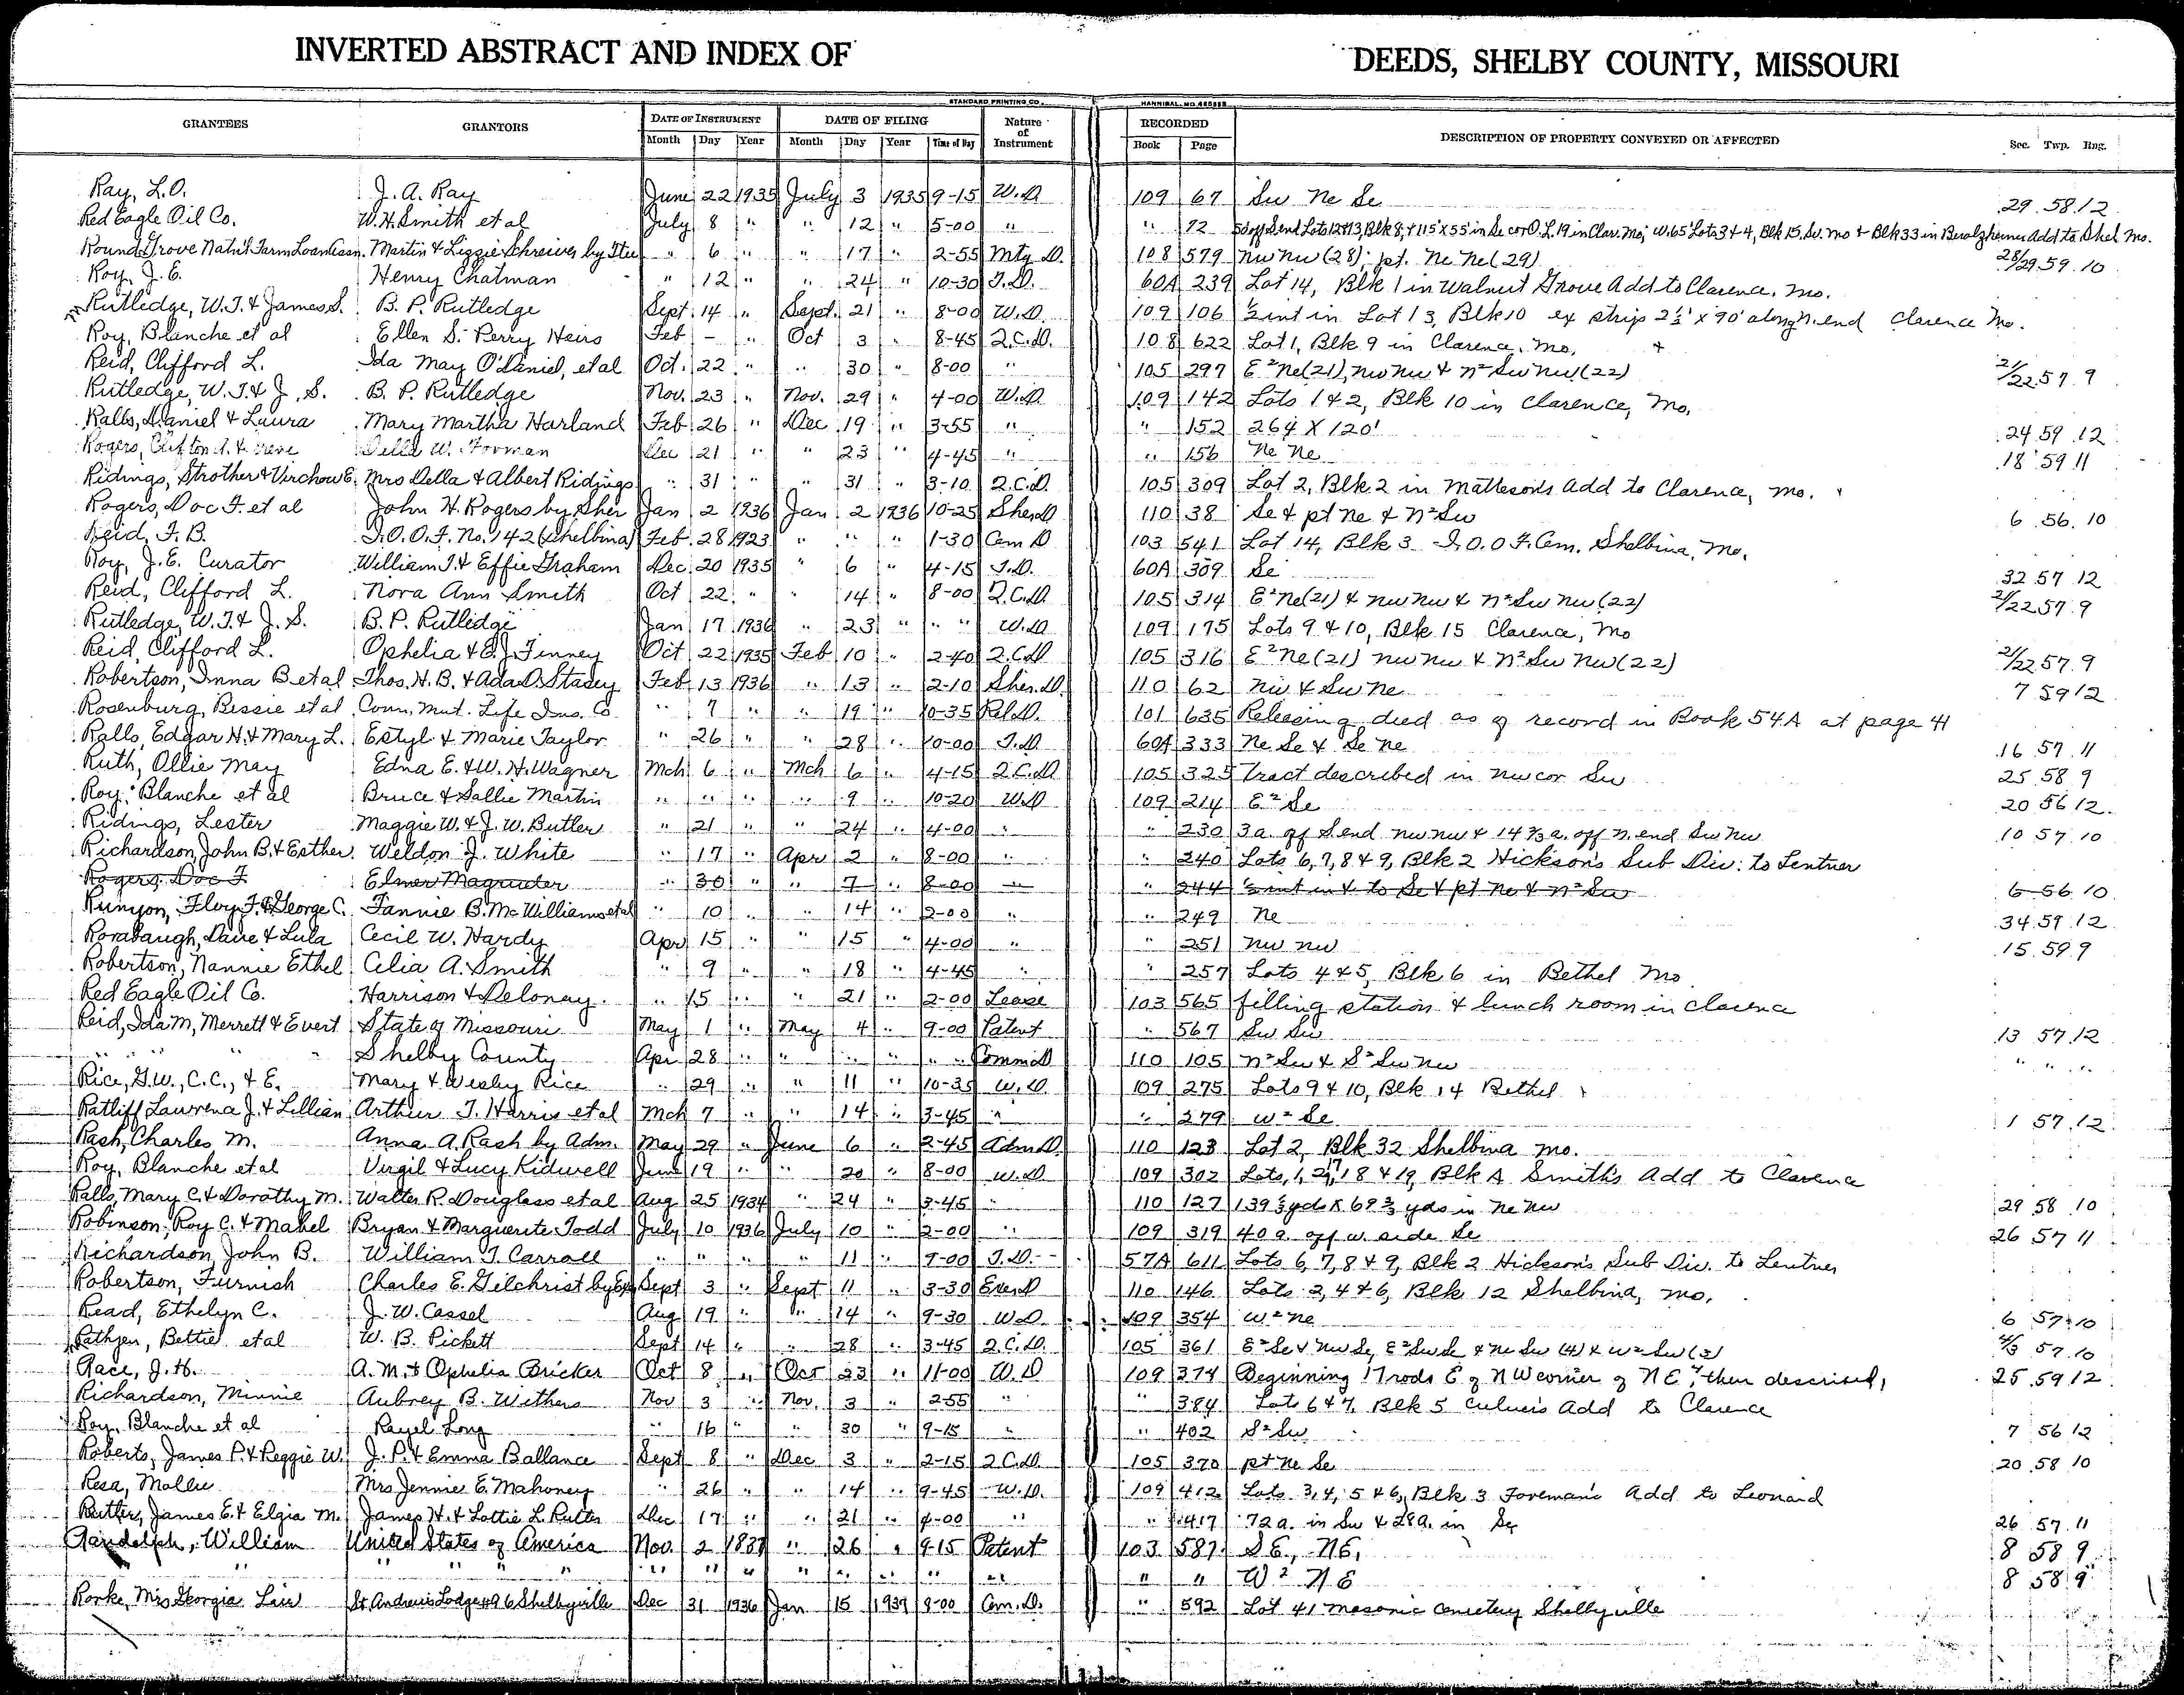 INVERTED ABSTRACT AND INDEX OF DEEDS, SHELBY COUNTY, MISSOURI
STANDARD PRINTING CO. HANNIBAL. MO.
GRANTEES GRANTORS DATE OF INSTRUMENT DATE OF FILING Nature of Instrument RECORDED DESCRIPTION OF PROPERTY CONVEYED OR AFFECTED Sec. Twp. Rng.
Month Day Year Month Day Year Time of Day Book Page
Ray, L.O. J. A. Ray June 22 1935 July 3 1935 9-15 W.D. 109 67 Sw Ne Se 29 58 12
Red Eagle Oil Co. W.H. Smith et al July 8 " " 12 " 5-00 " " 72 Lots 12 & 13, Blk 8, & 115' x 55' in Se cor O.L. 19 in Clar. Mo; W. 65' Lots 3 & 4, Blk 15, & Blk 33 in Add to Shel. Mo.
Round Grove Nat'n'l Farm Loan Assn. Martin & Lizzie Schreiver by Tree " 6 " " 17 " 2-55 Mtg D. 108 579 Nw Nw (28); pt. Ne Ne (29) 28/29 59 10
Roy, J. E. Henry Chatman " 12 " " 24 " 10-30 T.D. 60A 239 Lot 14, Blk 1 in Walnut Grove Add to Clarence, Mo.
Rutledge, W.T. & James S. B. P. Rutledge Sept. 14 " Sept. 21 " 8-00 W.D. 109 106 ½ int in Lot 13, Blk 10 ex strip 2½' x 90' along N. end Clarence Mo.
Roy, Blanche et al Ellen S. Perry Heirs Feb - " Oct 3 " 8-45 Q.C.D. 108 622 Lot 1, Blk 9 in Clarence, Mo.
Reid, Clifford L. Ida May O'Daniel, et al Oct. 22 " " 30 " 8-00 " 105 297 E² Ne (21), Nw Nw & N² Sw Nw (22) 21/22 57 9
Rutledge, W.T. & J. S. B. P. Rutledge Nov. 23 " Nov. 29 " 4-00 W.D. 109 142 Lots 1 & 2, Blk 10 in Clarence, Mo.
Ralls, Daniel & Laura Mary Martha Harland Feb 26 " Dec 19 " 3-55 " " 152 264 X 120' 24 59 12
Rogers, Clifton A. & Irene Della W. Forman Dec 21 " " 23 " 4-45 " " 156 Ne Ne 18 59 11
Ridings, Strother & Virchow E. Mrs Della & Albert Ridings " 31 " " 31 " 3-10 Q.C.D. 105 309 Lot 2, Blk 2 in Matteson's Add to Clarence, Mo.
Rogers, Doc F. et al John H. Rogers by Sher Jan 2 1936 Jan 2 1936 10-25 Sher D 110 38 Se & pt Ne & N² Sw 6 56 10
Reid, F. B. I.O.O.F. No. 142 (Shelbina) Feb. 28 1923 " " " 1-30 Cem D 103 541 Lot 14, Blk 3 I.O.O.F. Cem. Shelbina, Mo.
Roy, J.E. Curator William T. & Effie Graham Dec. 20 1935 " 6 " 4-15 T.D. 60A 309 Se 32 57 12
Reid, Clifford L. Nora Ann Smith Oct 22 " " 14 " 8-00 Q.C.D. 105 314 E² Ne (21) & Nw Nw & N² Sw Nw (22) 21/22 57 9
Rutledge, W.T. & J. S. B. P. Rutledge Jan 17 1936 " 23 " " " W.D 109 175 Lots 9 & 10, Blk 15 Clarence, Mo
Reid, Clifford L. Ophelia & E.J. Finney Oct 22 1935 Feb 10 " 2-40 Q.C.D 105 316 E² Ne (21) Nw Nw & N² Sw Nw (22) 21/22 57 9
Robertson, Inna B et al Thos. H. B. & Ada D. Stacey Feb 13 1936 " 13 " 2-10 Sher. D. 110 62 Nw & Sw Ne 7 59 12
Rosenburg, Bessie et al Conn. Mut. Life Ins. Co. " 7 " " 19 " 10-35 Rel D. 101 635 Releasing deed as of record in Book 54A at page 41
Ralls, Edgar H. & Mary L. Estyl & Marie Taylor " 26 " " 28 " 10-00 T.D. 60A 333 Ne Se & Se Ne 16 57 11
Ruth, Ollie May Edna E. & W. H. Wagner Mch 6 " Mch 6 " 4-15 Q.C.D 105 325 Tract described in Nw cor Sw 25 58 9
Roy, Blanche et al Bruce & Sallie Martin " " " " 9 " 10-20 W.D 109 214 E² Se 20 56 12
Ridings, Lester Maggie W. & J. W. Butler " 21 " " 24 " 4-00 " " 230 3 a. off S. end Nw Nw & 14 ⅔ a. off N. end Sw Nw 10 57 10
Richardson, John B. & Esther Weldon J. White " 17 " Apr 2 " 8-00 " " 240 Lots 6, 7, 8 & 9, Blk 2 Hickson's Sub Div. to Lentner
Rogers Doc F Elmer Magruder " 30 " " 7 " 8-00 " " 244 ½ int in & to Se & pt Ne & N² Sw 6 56 10
Runyon, Floy F. & George C. Fannie B. McWilliams et al " 10 " " 14 " 2-00 " " 249 Ne 34 59 12
Rorabaugh, Dave & Lula Cecil W. Hardy Apr 15 " " 15 " 4-00 " " 251 Nw Nw 15 59 9
Robertson, Nannie Ethel Celia A. Smith " 9 " " 18 " 4-45 " " 257 Lots 4 & 5, Blk 6 in Bethel Mo
Red Eagle Oil Co. Harrison & Deloney " 15 " " 21 " 2-00 Lease 103 565 filling station & lunch room in Clarence
Reid, Ida M, Merrett & Evert State of Missouri May 1 " May 4 " 9-00 Patent " 567 Sw Sw 13 57 12
" " " " Shelby County Apr 28 " " " " " Comm D 110 105 N² Sw & S² Sw Nw " " "
Rice, G.W., C.C., & E. Mary & Wesley Rice " 29 " " 11 " 10-35 W.D. 109 275 Lots 9 & 10, Blk 14 Bethel
Ratliff Lawrena J. & Lillian Arthur T. Harris et al Mch 7 " " 14 " 3-45 " " 279 W² Se 1 57 12
Rash, Charles M. Anna A. Rash by Adm. May 29 " June 6 " 2-45 Adm D. 110 123 Lot 2, Blk 32 Shelbina Mo.
Roy, Blanche et al Virgil & Lucy Kidwell June 19 " " 20 " 8-00 W.D. 109 302 Lots, 1, 2, 17, 18 & 19, Blk A Smith's Add to Clarence
Ralls, Mary C. & Dorathy M. Walter R. Douglass et al Aug 25 1934 " 24 " 3-45 " 110 127 139 ⅓ yds X 69 ⅔ yds in Ne Nw 29 58 10
Robinson, Roy C. & Mabel Bryan & Marguerite Todd July 10 1936 July 10 " 2-00 " 109 319 40 a. off W. side Se 26 57 11
Richardson, John B. William T. Carroll " " " " 11 " 9-00 T.D. 57A 611 Lots 6, 7, 8 & 9, Blk 2 Hickson's Sub Div. to Lentner
Robertson, Furnish Charles E. Gilchrist by Ex Sept 3 " Sept 11 " 3-30 Exer D 110 146 Lots 2, 4 & 6, Blk 12 Shelbina, Mo.
Read, Ethelyn C. J. W. Cassel Aug 19 " " 14 " 9-30 W.D. 109 354 W² Ne 6 57 10
Rathjen, Bettie et al W. B. Pickett Sept 14 " " 28 " 3-45 Q.C.D. 105 361 E² Se & Nw Se, E² Sw Se & Ne Sw (4) & W² Sw (3) 4/3 57 10
Race, J. H. A. M. & Ophelia Bricker Oct 8 " Oct 23 " 11-00 W.D 109 374 Beginning 17 rods E of N W corner of N E 4, then described, 25 59 12
Richardson, Minnie Aubrey B. Withers Nov 3 " Nov. 3 " 2-55 " " 384 Lots 6 & 7, Blk 5 Culver's Add to Clarence
Roy, Blanche et al Rayel Long " 16 " " 30 " 9-15 " " 402 S² Sw 7 56 12
Roberts, James P. & Peggie W. J. P. & Emma Ballance Sept 8 " Dec 3 " 2-15 Q.C.D. 105 370 pt Ne Se 20 58 10
Resa, Mollie Mrs Jennie E. Mahoney " 26 " " 14 " 9-45 W.D. 109 412 Lots 3, 4, 5 & 6, Blk 3 Foreman's Add to Leonard
Rutter, James E. & Elgia M. James H. & Lottie L. Rutter Dec 17 " " 21 " 4-00 " " 417 72 a. in Sw & 28 a. in Se 26 57 11
Randolph, William United States of America Nov. 2 1837 " 26 " 9-15 Patent 103 587 S E, N E, 8 58 9
" " " " " " " " " " " " " " " W² N E 8 58 9
Rorke, Mrs Georgia Lair St. Andrews Lodge #96 Shelbyville Dec 31 1936 Jan 15 1937 8-00 Cem. D. " 592 Lot 41 Masonic Cemetery Shelbyville